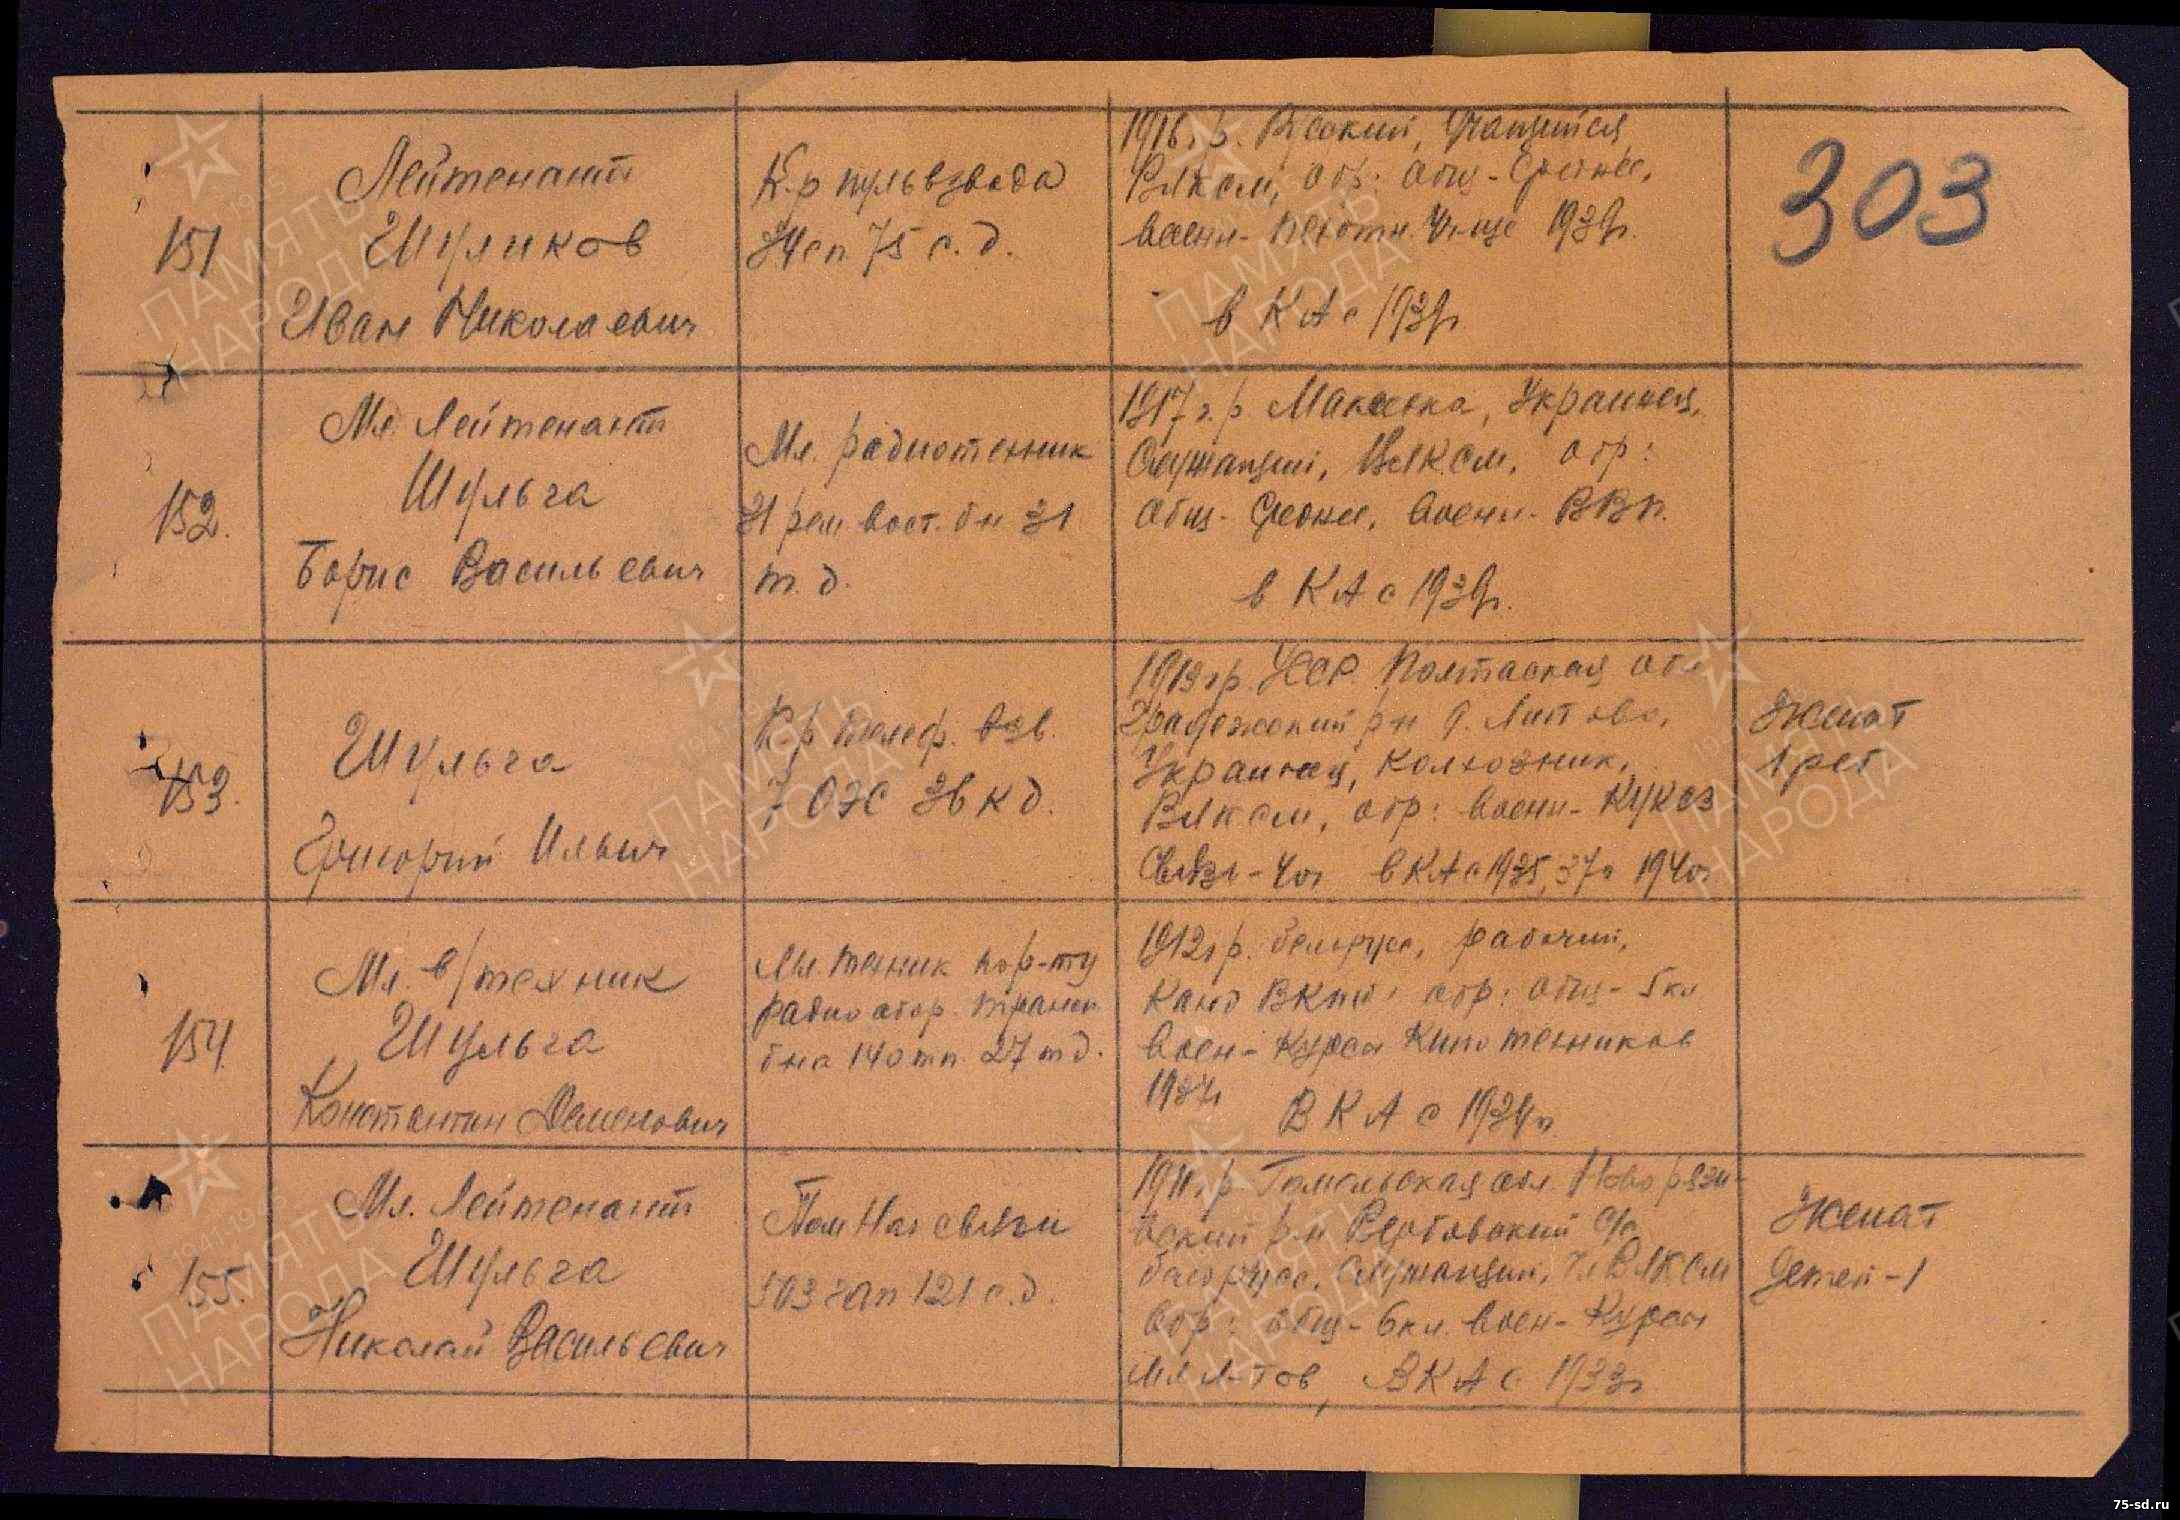 303
151
Лейтенант
Шуликов
Иван Николаевич
К-р пульвзвода
34 сп 75 с.д.
1916 г.р. Русский, Учащийся
ВЛКСМ, обр: общ- Среднее,
военн- пехотн. Уч-ще 1939г.
в КА с 1939г
152.
Мл. Лейтенант
Шульга
Борис Васильевич
Мл. радиотехник
31 рем вост. бн 31
т.д.
1917 г.р. Макеевка, Украинец,
Служащий, ВЛКСМ, обр:
общ- Среднее, военн-
в КА с 1939г.
153.
Шульга
Григорий Ильич
К-р телеф. взв.
7 ОЭС 3в к д.
1913 г.р. УССР. Полтавская обл
р-н Липово,
Украинец, колхозник,
ВЛКСМ, обр: военн- КУКС
Связи - 40г в КА с 1935, 37 и 1940г
Женат
1 реб
154
Мл. в/техник
Шульга
Константин Семенович
Мл. техник по р-ту
радио обор. трансп.
б-на 140 тп. 27 т д.
1912 г.р. белорус, рабочий,
Канд ВКПб обр: общ- 5 кл
Воен- Курсы Кинотехников
1934г В КА с 1934г.
155.
Мл. Лейтенант
Шульга
Николай Васильевич
Пом Нач связи
503 гап 121 с.д.
1911 г.р. Гомельская обл.
р-н Вербовский с/с
белорусс, служащий, чл ВЛКСМ
Обр: общ- 6 кл. Воен- Курсы
мл л-тов, В КА с 1933г
Женат
Детей - 1
ПАМЯТЬ
НАРОДА
75-sd.ru